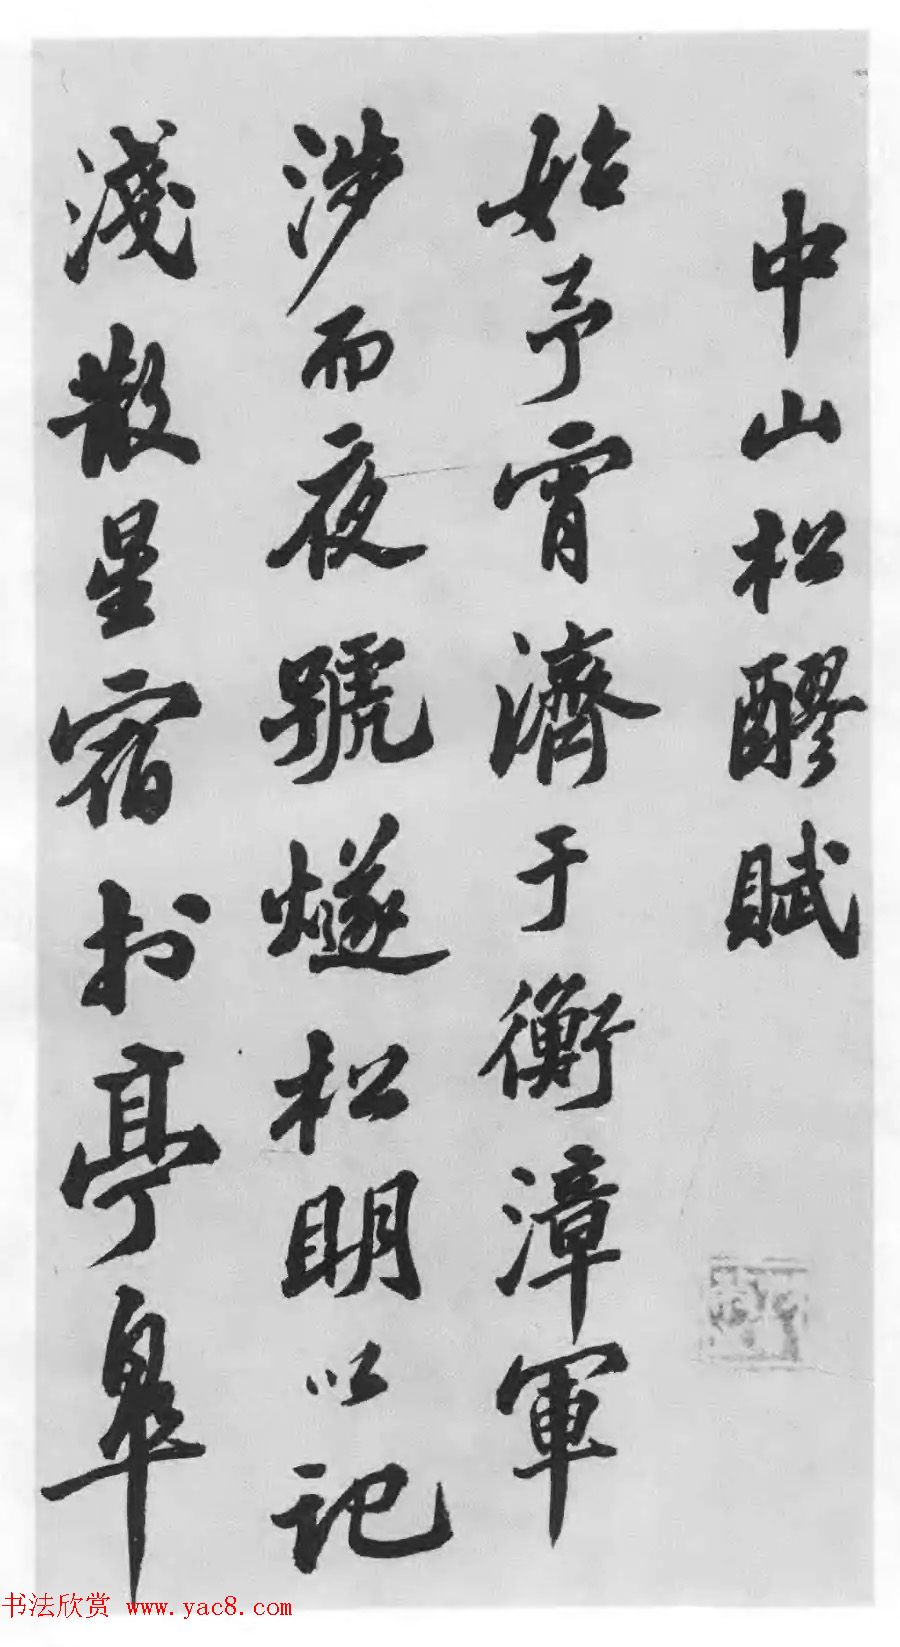 中山松醪賦
始予宵濟于衡漳軍
涉而夜號燧松明以記
淺散星宿扵亭皋
书法欣赏 www.yac8.com